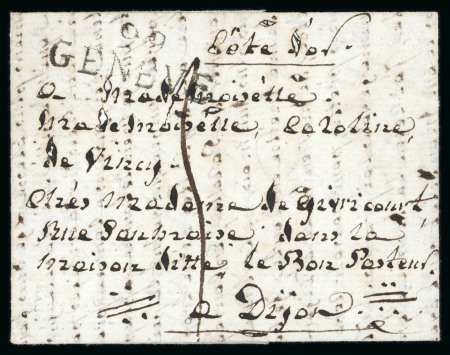 99
GENEVE
Côte d'or.
a Mademoiselle
Mademoiselle, Caroline,
de Vincy.
Chés Madame de Givricourt
Rue Saumaise dans la
maison ditte, le Bon Pasteur.
a Dijon